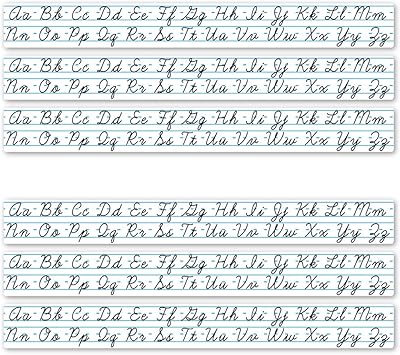 Aa Bb Cc Dd Ee Ff Gg Hh Ii Jj Kk Ll Mm
Nn Oo Pp Qq Rr Ss Tt Uu Vv Ww Xx Yy Zz
Aa Bb Cc Dd Ee Ff Gg Hh Ii Jj Kk Ll Mm
Nn Oo Pp Qq Rr Ss Tt Uu Vv Ww Xx Yy Zz
Aa Bb Cc Dd Ee Ff Gg Hh Ii Jj Kk Ll Mm
Nn Oo Pp Qq Rr Ss Tt Uu Vv Ww Xx Yy Zz
Aa Bb Cc Dd Ee Ff Gg Hh Ii Jj Kk Ll Mm
Nn Oo Pp Qq Rr Ss Tt Uu Vv Ww Xx Yy Zz
Aa Bb Cc Dd Ee Ff Gg Hh Ii Jj Kk Ll Mm
Nn Oo Pp Qq Rr Ss Tt Uu Vv Ww Xx Yy Zz
Aa Bb Cc Dd Ee Ff Gg Hh Ii Jj Kk Ll Mm
Nn Oo Pp Qq Rr Ss Tt Uu Vv Ww Xx Yy Zz